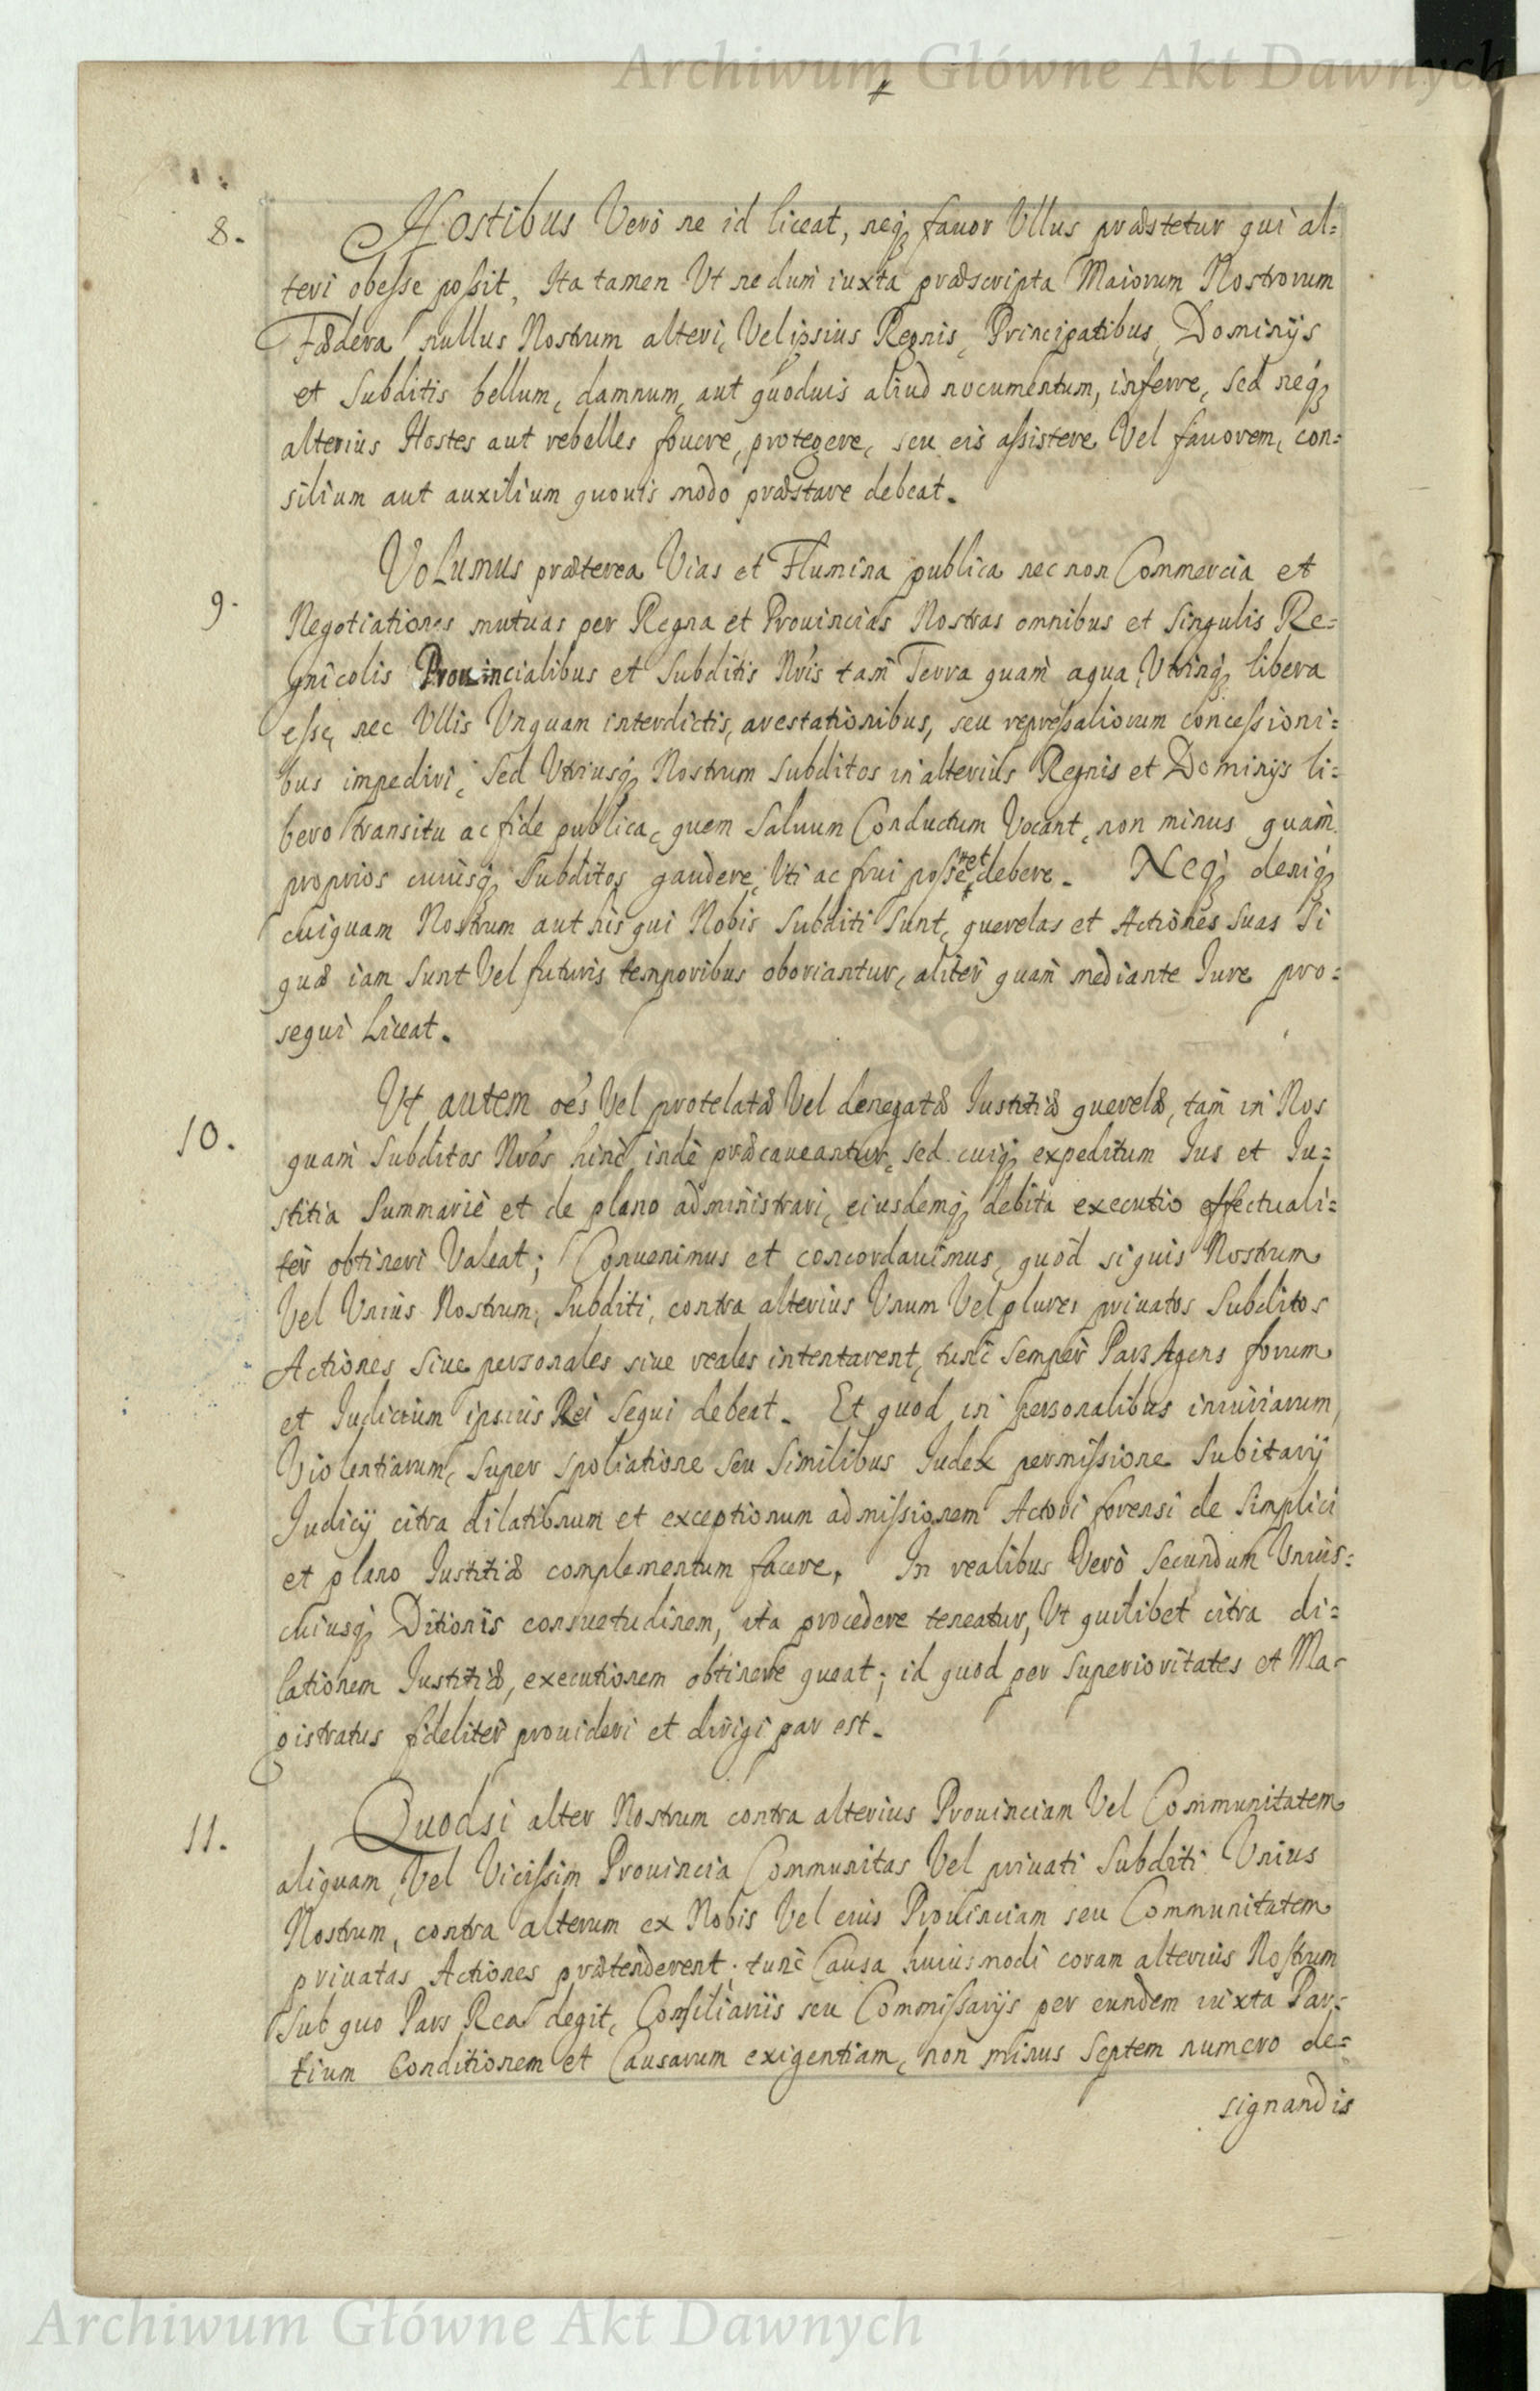 Archiwum Główne Akt Dawnych
8.
Hostibus Verò ne id liceat, neq₃ fauor Vllus præstetur qui al=
teri obesse possit, Ita tamen Vt ne dum iuxta præscripta Maiorum Nostrorum
Fædera nullus Nostrum alteri, Vel ipsius Regnis, Principatibus, Dominijs
et Subditis bellum, damnum, aut quoduis aliud nocumentum, inferre, sed neq₃
alterius Hostes aut rebelles fouere, protegere, seu eis assistere Vel fauorem, con=
silium aut auxilium quouis modo præstare debeat.
9.
Volumus præterea Vias et Flumina publica nec non Commercia et
Negotiationes mutuas per Regna et Prouincias Nostras omnibus et Singulis Re=
gnicolis Prouincialibus et Subditis Nris tam Terra quam aqua Vtrinq₃ libera
esse, nec Vllis Vnquam interdictis, arestationibus, seu repressaliorum concessioni=
bus impediri, Sed Vtriusq₃ Nostrum Subditos in alterius Regnis et Dominijs li=
bero transitu ac fide publica, quem Saluum Conductum Vocant, non minus quam
proprios cuiusq₃ Subditos gaudere, Vti ac frui posse et debere. Neq₃ deniq₃
cuiquam Nostrum aut his qui Nobis Subditi Sunt, querelas et Actiones Suas Si
quæ iam Sunt Vel futuris temporibus oboriantur, aliter quam mediante Iure pro=
sequi Liceat.
10.
Vt autem oes Vel protelatæ Vel denegatæ Iustitiæ querelæ, tam in Nos
quam Subditos Nros hinc inde præcaueantur, Sed cuiq₃ expeditum Ius et Iu=
stitia Summariè et de plano administrari, eiusdemq₃ debita executio effectuali=
ter obtineri Valeat; Conuenimus et concordauimus, quòd siquis Nostrum
Vel Vnius Nostrum, Subditi, contra alterius Vnum Vel plures priuatos Subditos
Actiones Siue personales siue reales intentarent, tunc Semper Pars Agens forum
et Iudicium ipsius Rei Sequi debeat. Et quod in personalibus iniuriarum,
Violentiarum, Super Spoliatione Seu Similibus Iudex permissione Subitarij
Iudicij citra dilationum et exceptionum admissionem Actori forensi de Simplici
et plano Iustitiæ complementum facere, In realibus Verò Secundum Vnius=
cuiusq₃ Ditionis consuetudinem, ita procedere teneatur, Vt quilibet citra di=
lationem Iustitiæ, executionem obtinere queat; id quod per Superioritates et Ma=
gistratus fideliter prouideri et dirigi par est.
11.
Quodsi alter Nostrum contra alterius Prouinciam Vel Communitatem
aliquam, Vel Vicissim Prouincia Communitas Vel priuati Subditi Vnius
Nostrum, contra alterum ex Nobis Vel eius Prouinciam seu Communitatem
priuatas Actiones prætenderent; tunc Causa huiusmodi coram alterius Nostrum
Sub quo Pars Rea degit, Consiliariis seu Commissarijs per eundem iuxta Par=
tium Conditionem et Causarum exigentiam, non minus Septem numero de=
signandis
Archiwum Główne Akt Dawnych